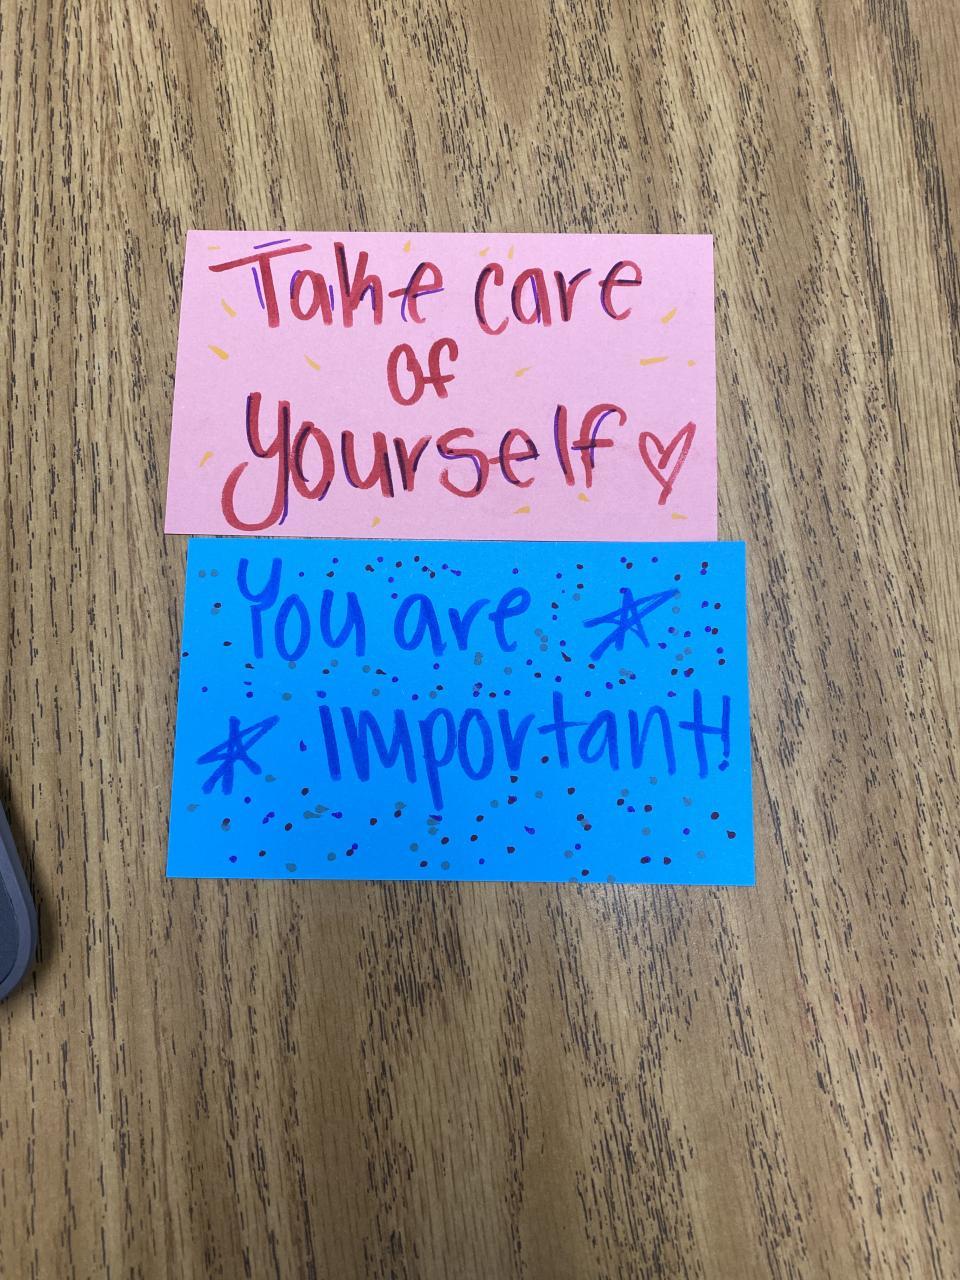 Take care
of
Yourself
You are
important!